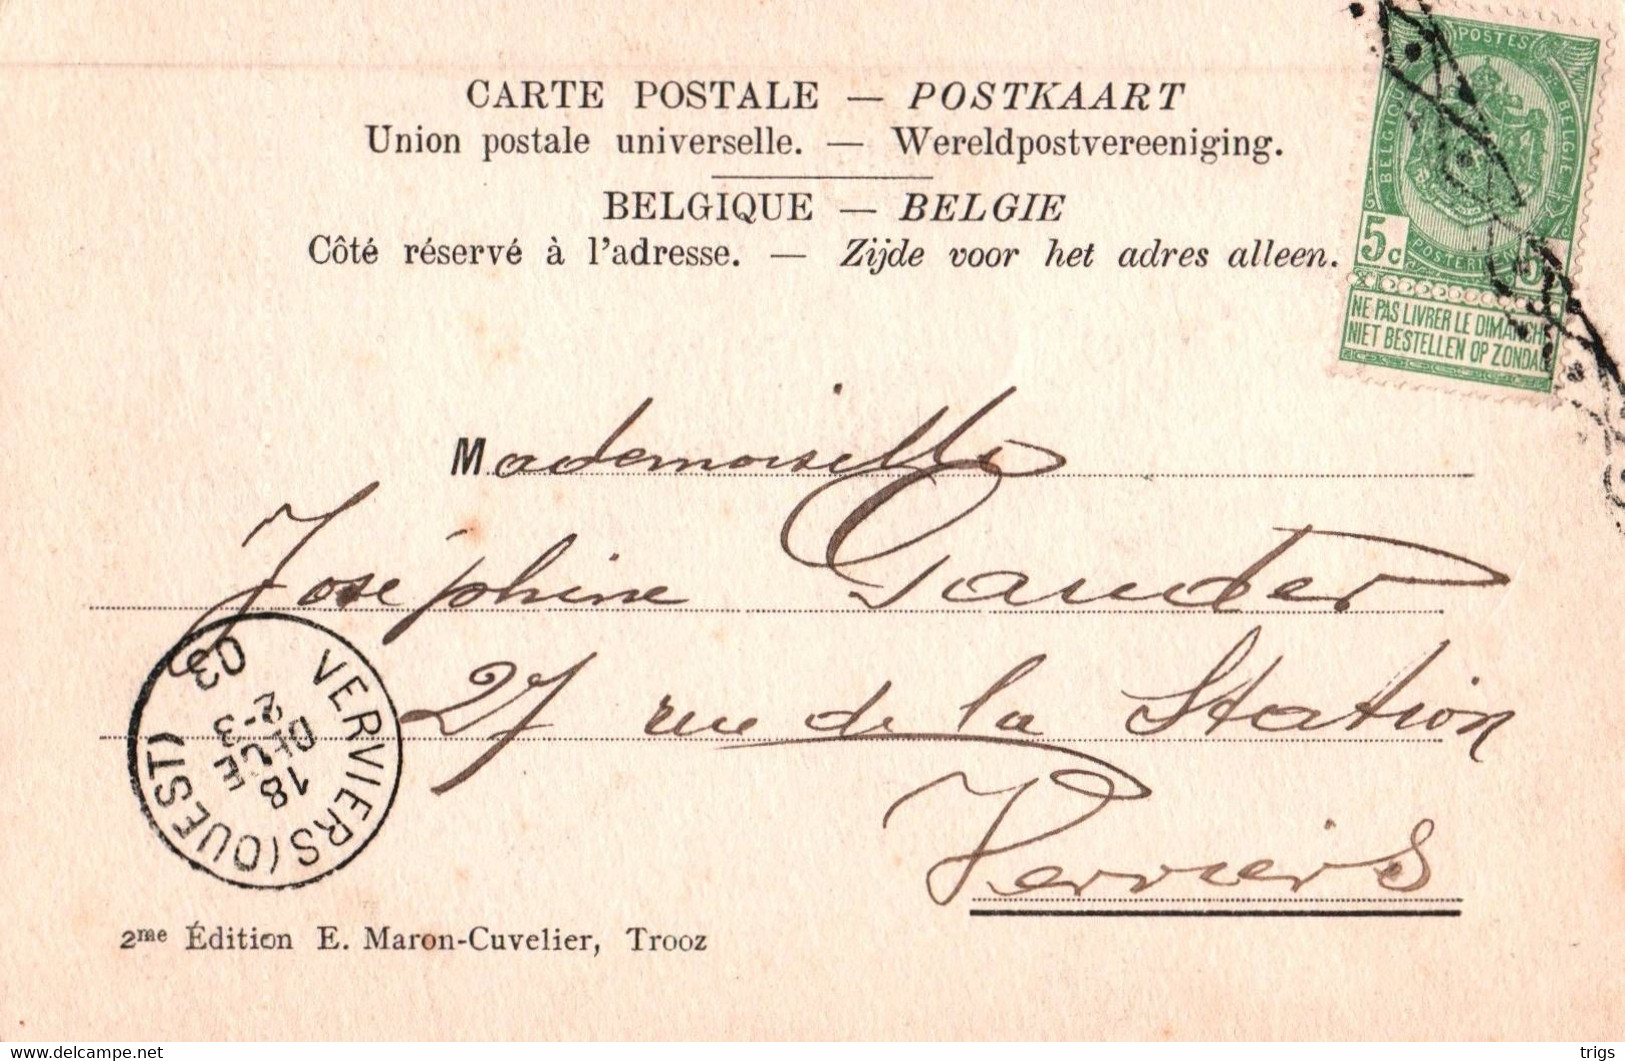 CARTE POSTALE — POSTKAART
Union postale universelle. — Wereldpostvereeniging.
BELGIQUE — BELGIE
Côté réservé à l'adresse. — Zijde voor het adres alleen.
POSTES
BELGIQUE BELGIE
5c POSTERIJEN 5
NE PAS LIVRER LE DIMANCHE
NIET BESTELLEN OP ZONDAG
Mademoiselle
Joséphine Gauder
27 rue de la Station
Verviers
VERVIERS (OUEST)
18
DEC E
2-3
03
2me Édition E. Maron-Cuvelier, Trooz
delcampe.net
trigs